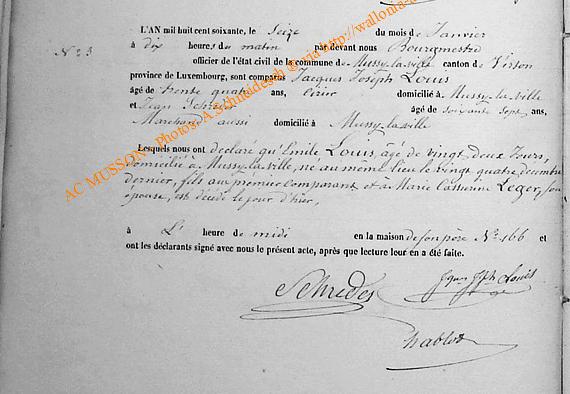 L'AN mil huit cent soixante, le Seize du mois de Janvier
N° 3 à dix heures du matin par devant nous Bourgmestre
officier de l'état civil de la commune de Mussy-la-ville canton de Virton
province de Luxembourg, sont comparus Jacques Joseph Louis
âgé de trente quatre ans, Cirier domicilié à Mussy-la-ville
et Jean âgé de soixante sept ans,
Marchand aussi domicilié à Mussy-la-ville
Lesquels nous ont déclaré qu'Emile Louis, âgé de vingt deux Jours,
domicilié à Mussy-la-ville, né au même lieu le vingt quatre decembre
dernier, fils au premier comparant et a Marie Catherine Leger, son
épouse, est décédé le jour d'hier,
à L' heure de midi en la maison de son père N° 166 et
ont les déclarants signé avec nous le présent acte, après que lecture leur en a été faite.
Jques Jph Louis
AC MUSSON - Photos: A.Schneidesch © via http://wallonia-